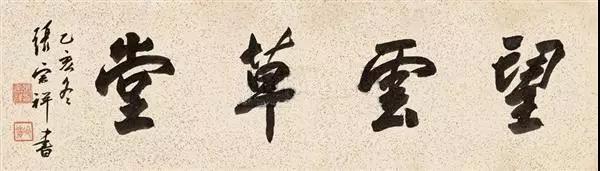 望雲草堂
乙亥冬
張宗祥書